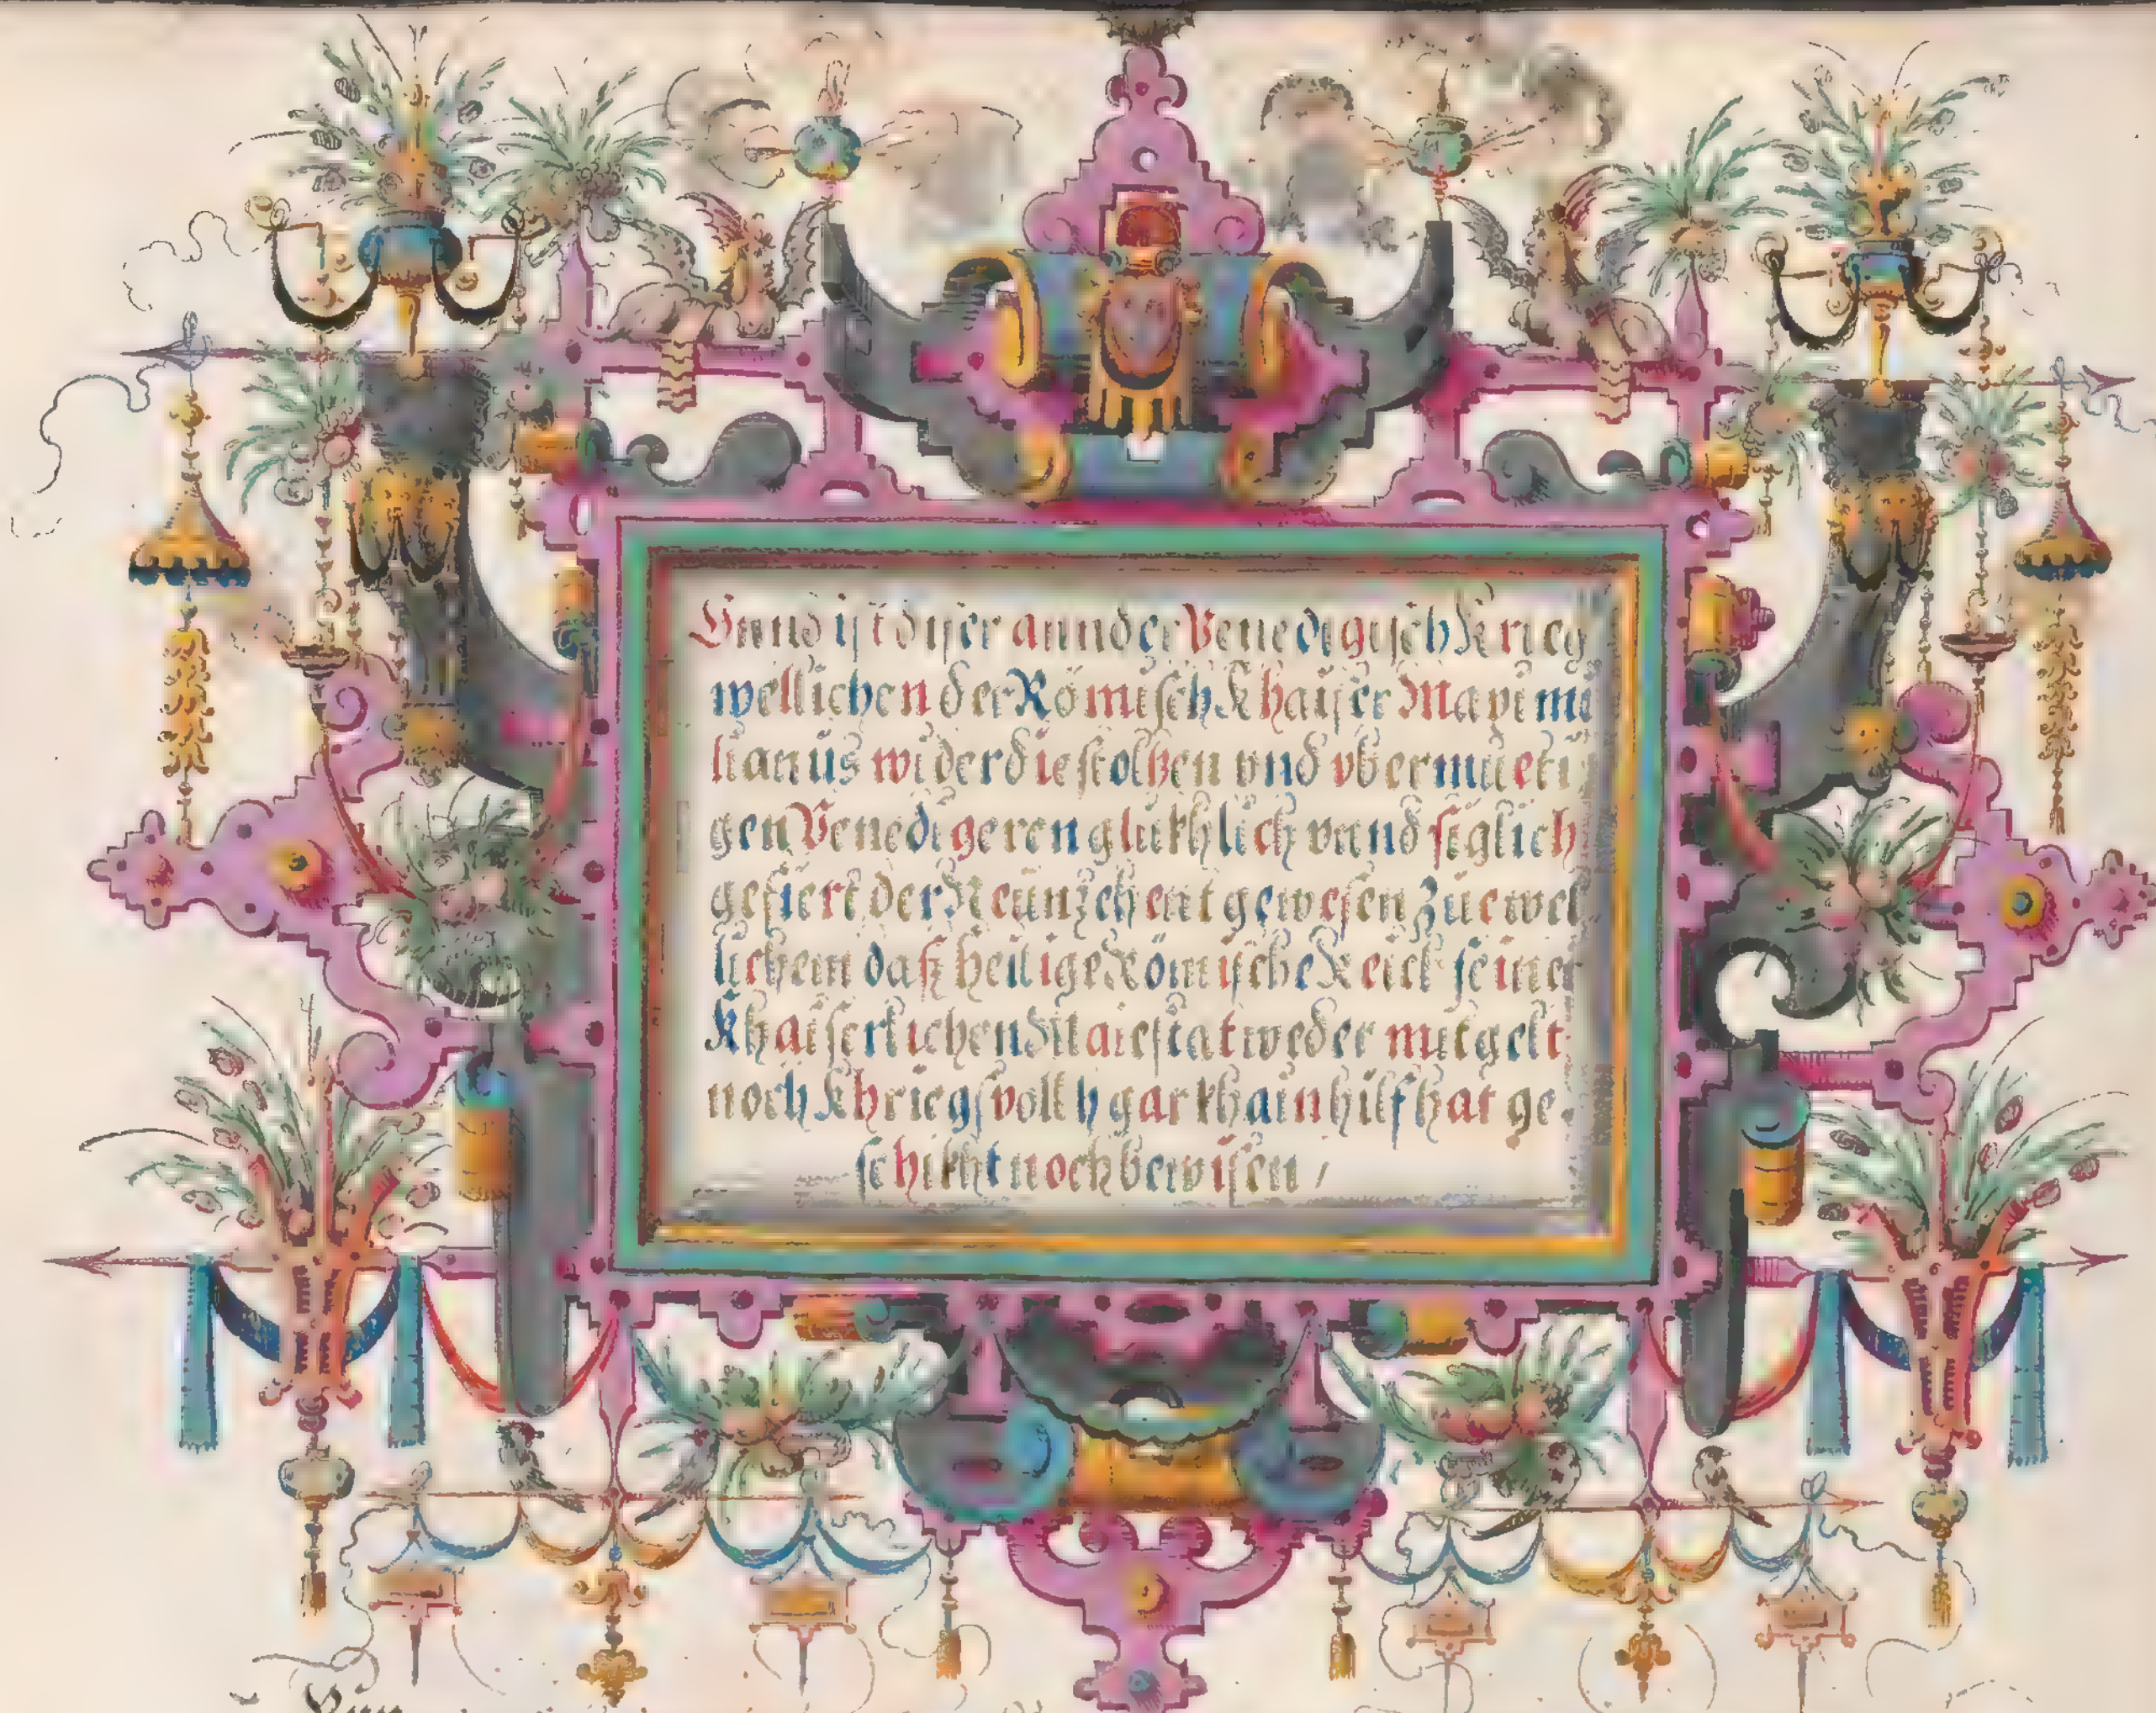 Vnnd ist diser annder Venedigisch Krieg
wellichen der Römisch Khaiser Maximi
lianus wider die stoltzen vnd vbermueti
gen Venedigeren glükhlich vnnd siglich
gefiert der Neünzehent gewesen Zue wel
lichem dasz heilige Römische Reich seiner
Khaiserlichen Maiestat weder mit gelt
noch Khriegsvolkh gar khain hilf hat ge
schikht noch bewisen /